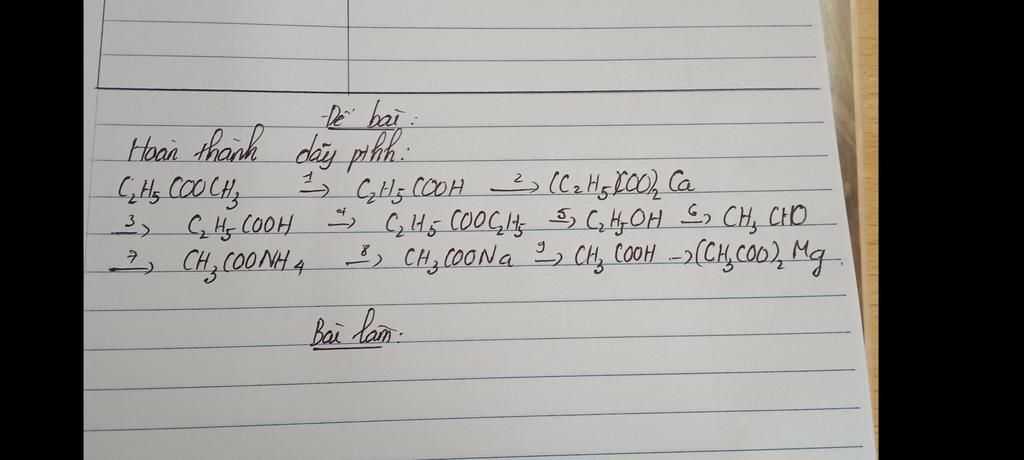 Đề bài:
Hoàn thành dãy pthh:
C₂H₅COOCH₃ —1→ C₂H₅COOH —2→ (C₂H₅COO)₂Ca
—3→ C₂H₅COOH —4→ C₂H₅COOC₂H₅ —5→ C₂H₅OH —6→ CH₃CHO
—7→ CH₃COONH₄ —8→ CH₃COONa —9→ CH₃COOH → (CH₃COO)₂Mg.
Bài làm: